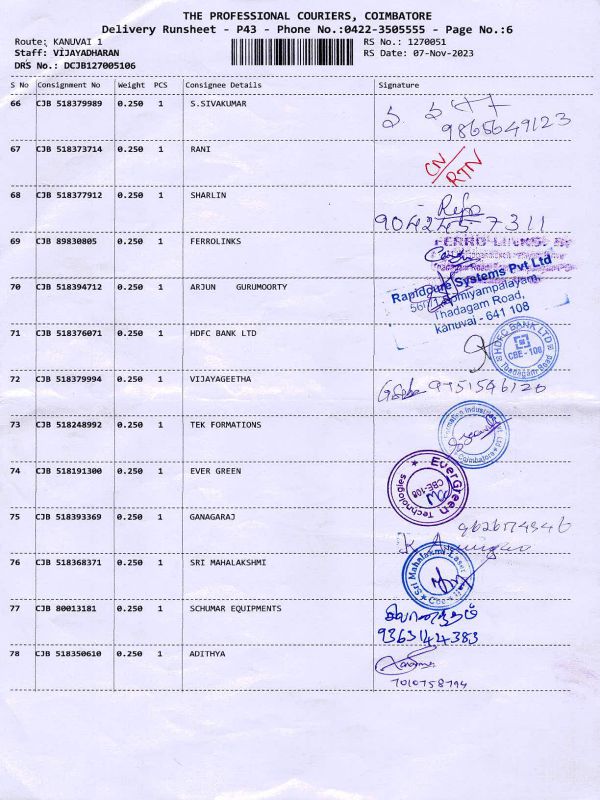 THE PROFESSIONAL COURIERS, COIMBATORE
Delivery Runsheet - P43 - Phone No.:0422-3505555 - Page No.:6
Route: KANUVAI 1 RS No.: 1270051
Staff: VIJAYADHARAN RS Date: 07-Nov-2023
DRS No.: DCJB127005106
S No Consignment No Weight PCS Consignee Details Signature
66 CJB 518379989 0.250 1 S.SIVAKUMAR
9865649123
67 CJB 518373714 0.250 1 RANI CN/RTN
68 CJB 518377912 0.250 1 SHARLIN
9042457311
69 CJB 89830805 0.250 1 FERROLINKS
FERRO LINKS
70 CJB 518394712 0.250 1 ARJUN GURUMOORTY
Rapidcure Systems Pvt Ltd
Somiyampalayam,
Thadagam Road,
Kanuvai - 641 108
71 CJB 518376071 0.250 1 HDFC BANK LTD
HDFC BANK LTD
CBE - 108
Thadagam Road
72 CJB 518379994 0.250 1 VIJAYAGEETHA 9751546120
73 CJB 518248992 0.250 1 TEK FORMATIONS
Coimbatore
74 CJB 518191300 0.250 1 EVER GREEN
EverGreen Technologies
CBE-108
75 CJB 518393369 0.250 1 GANAGARAJ
76 CJB 518368371 0.250 1 SRI MAHALAKSHMI
Sri Mahalakshmi Laser
77 CJB 80013181 0.250 1 SCHUMAR EQUIPMENTS
9363144383
78 CJB 518350610 0.250 1 ADITHYA
7010758794